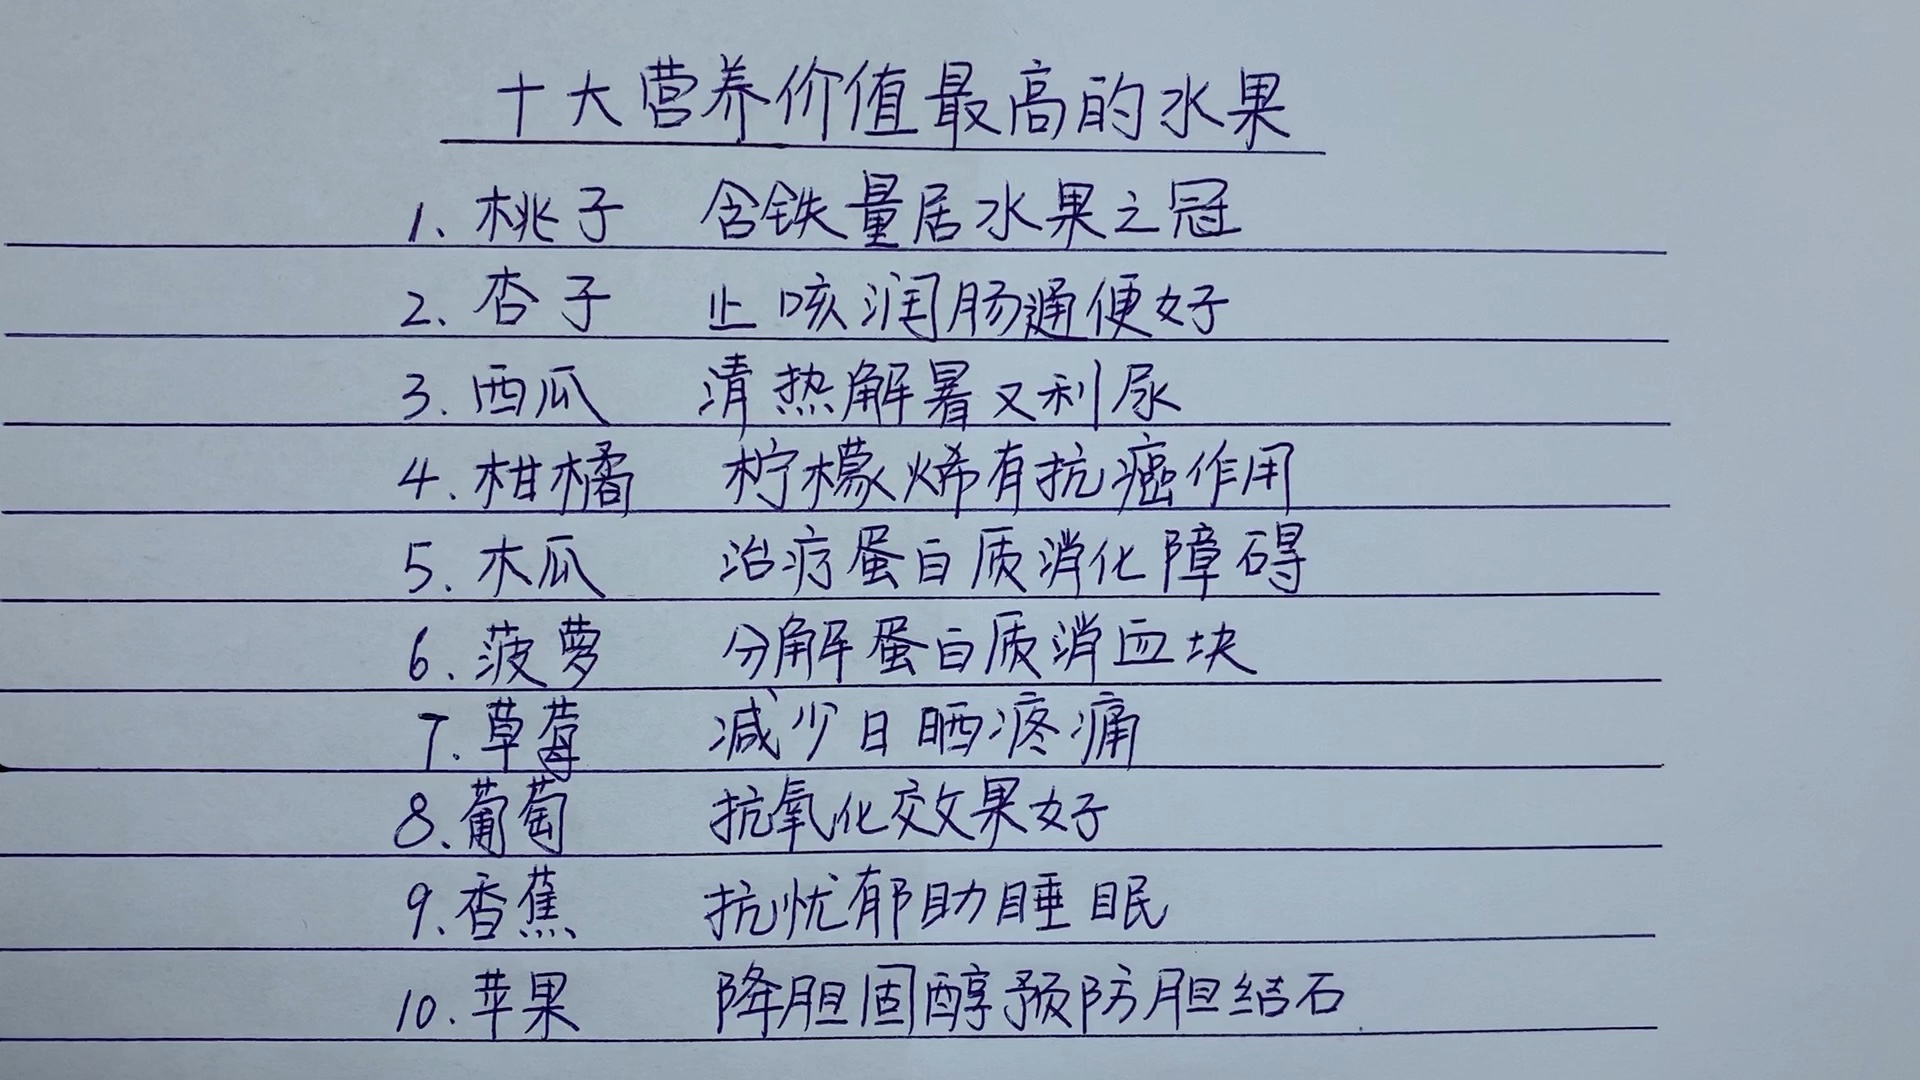 十大营养价值最高的水果
1、桃子 含铁量居水果之冠
2、杏子 止咳润肠通便好
3.西瓜 清热解暑又利尿
4.柑橘 柠檬烯有抗癌作用
5.木瓜 治疗蛋白质消化障碍
6.菠萝 分解蛋白质消血块
7.草莓 减少日晒疼痛
8.葡萄 抗氧化效果好
9.香蕉 抗忧郁助睡眠
10.苹果 降胆固醇预防胆结石